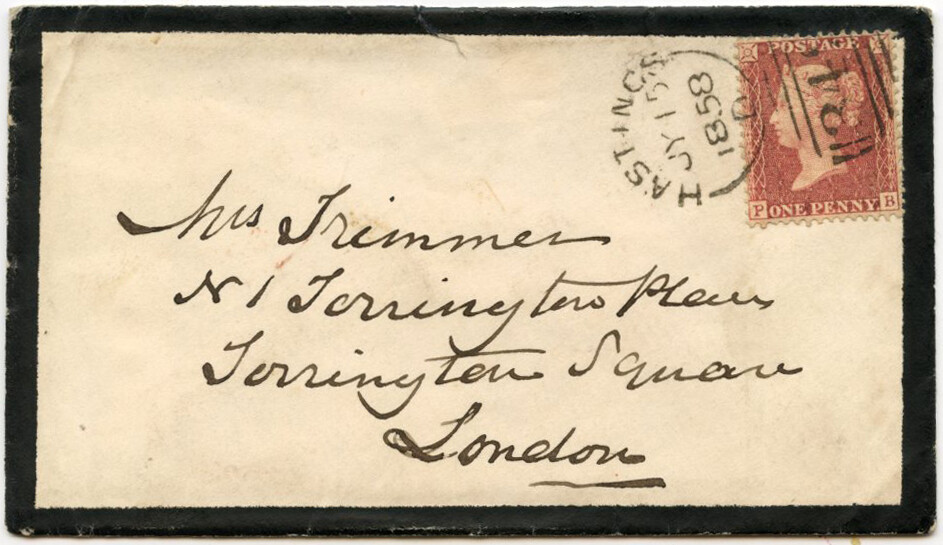 HASTINGS
JY 15
1858
D
POSTAGE
P ONE PENNY B
Mrs Trimmer
N 1 Torrington Place
Torrington Square
London